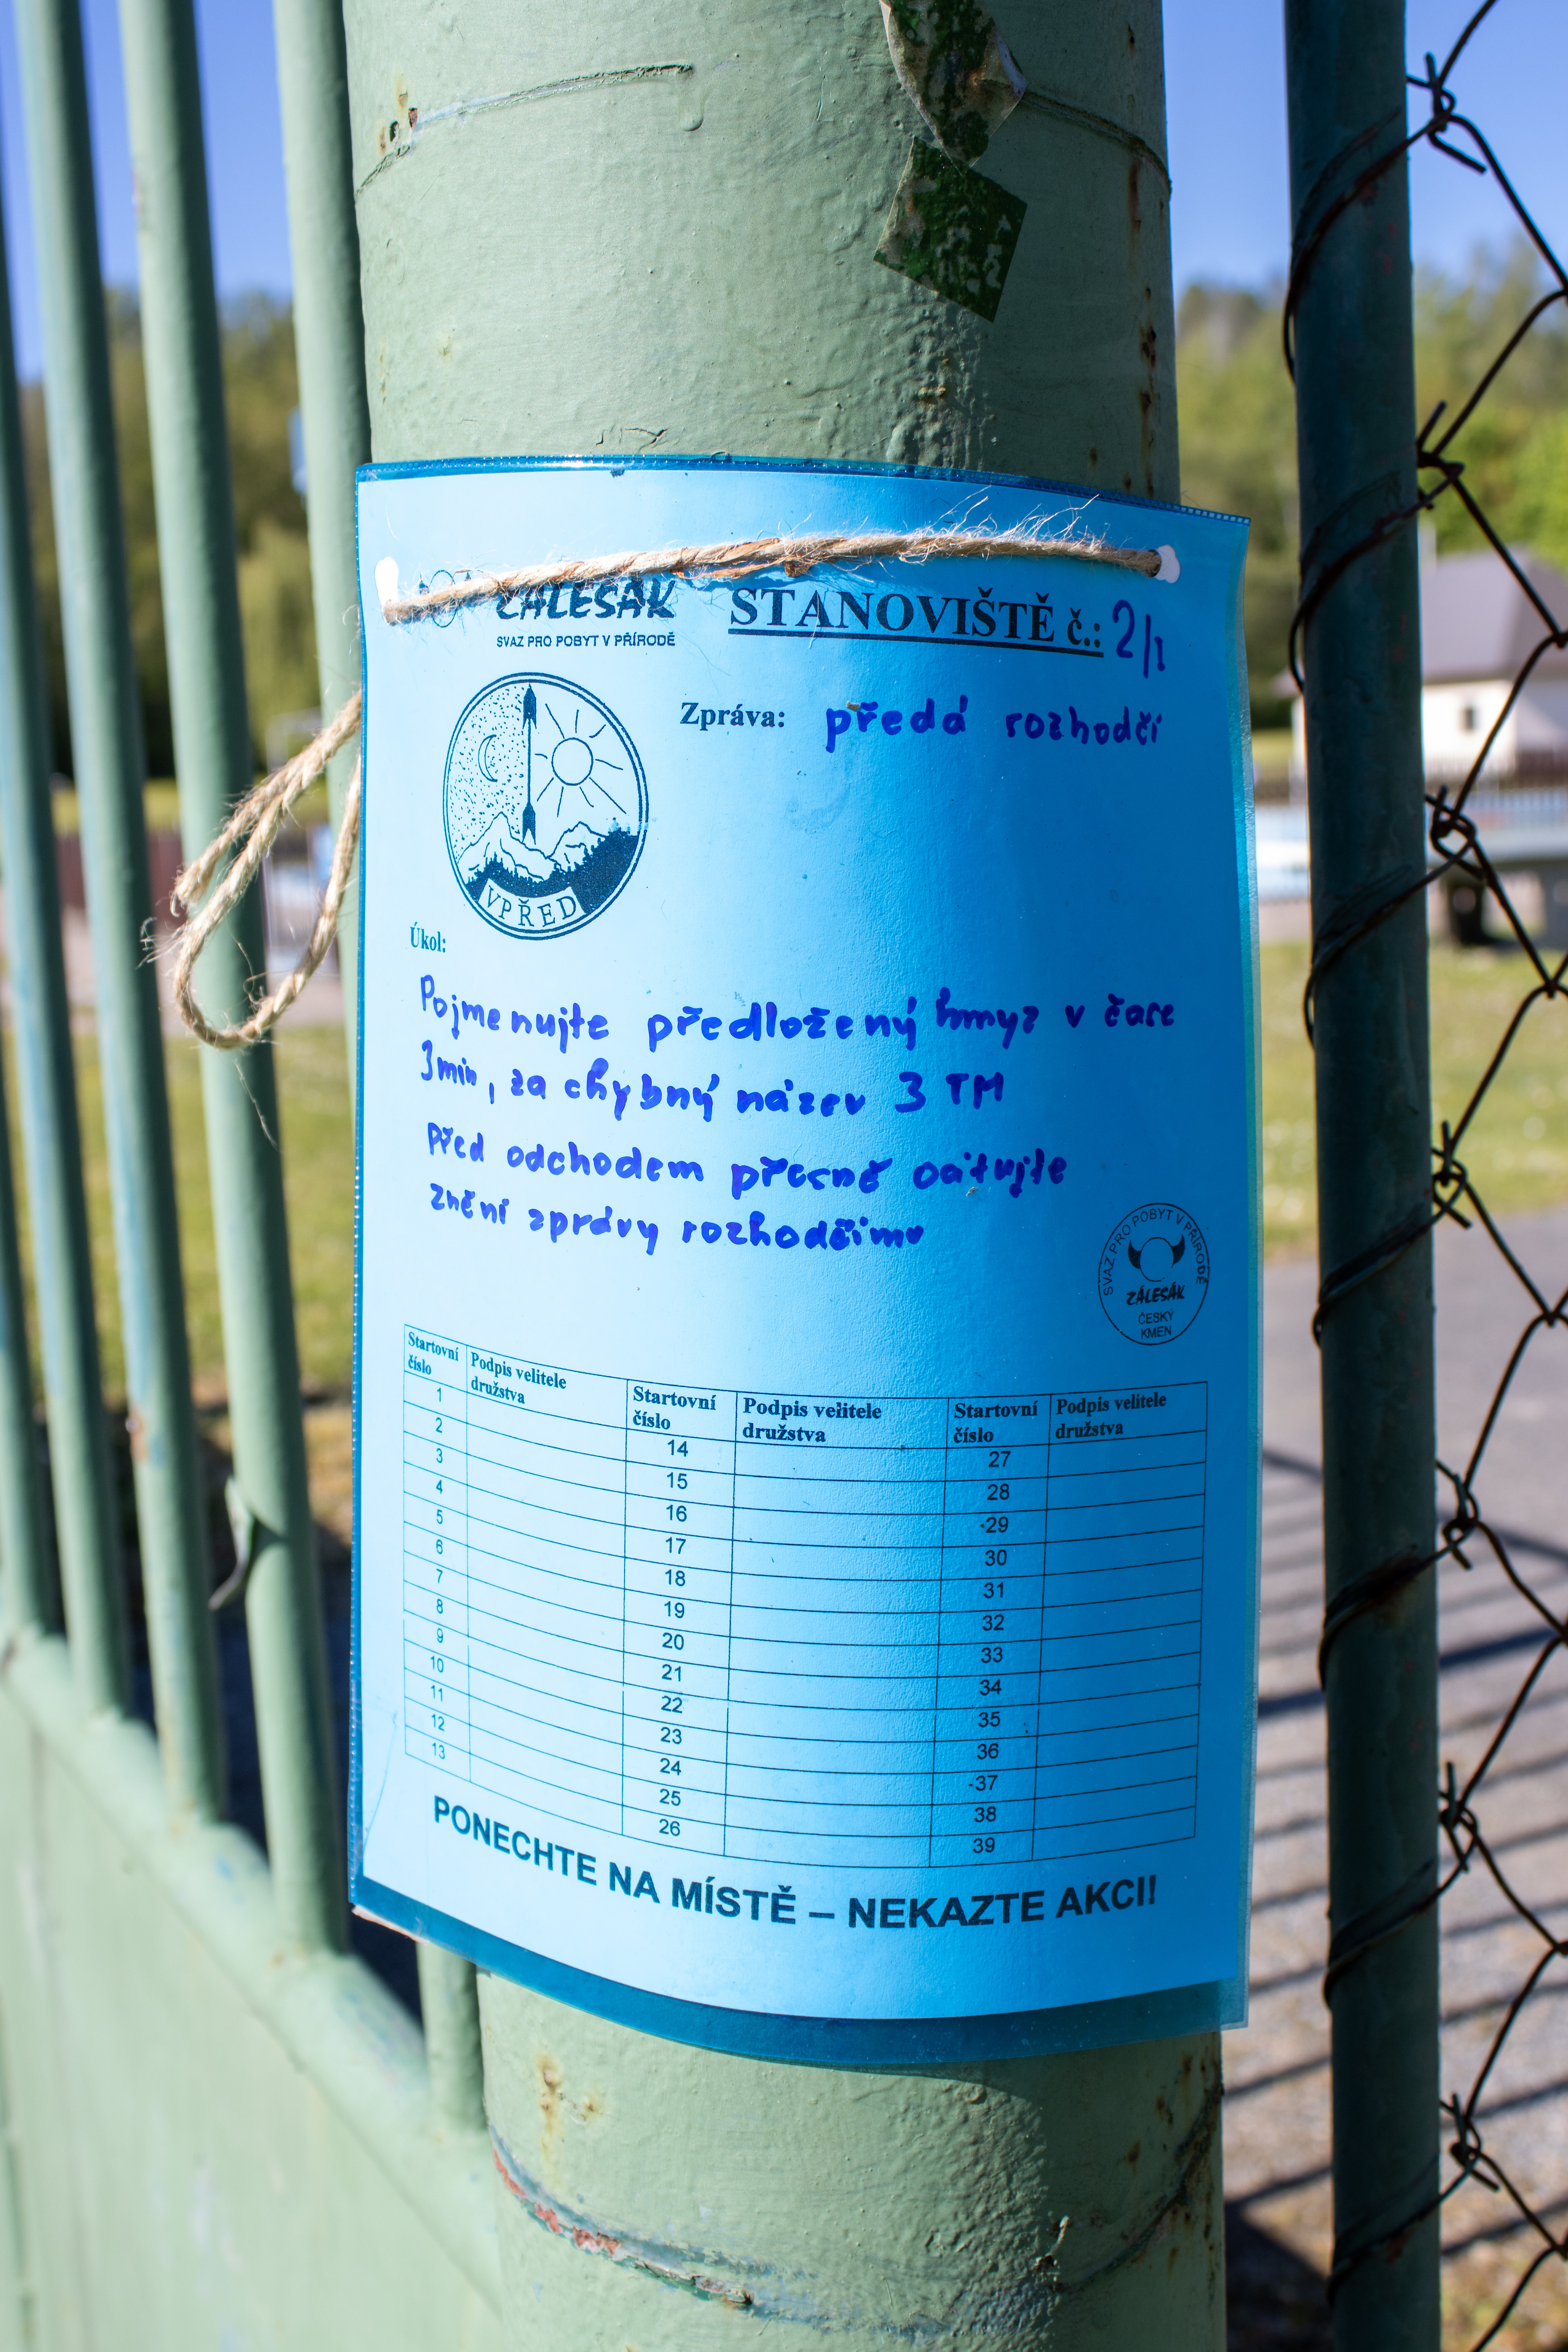 ZÁLESÁK
SVAZ PRO POBYT V PŘÍRODĚ
STANOVIŠTĚ č.: 2/1
Zpráva: předá rozhodčí
VPŘED
Úkol:
Pojmenujte předložený hmyz v čase
3min, za chybný název 3 TM
Před odchodem přesně citujte
znění zprávy rozhodčímu
SVAZ PRO POBYT V PŘÍRODĚ
ZÁLESÁK
ČESKÝ
KMEN
Startovní číslo Podpis velitele družstva Startovní číslo Podpis velitele družstva Startovní číslo Podpis velitele družstva
1 14 27
2 15 28
3 16 -29
4 17 30
5 18 31
6 19 32
7 20 33
8 21 34
9 22 35
10 23 36
11 24 -37
12 25 38
13 26 39
PONECHTE NA MÍSTĚ – NEKAZTE AKCI!